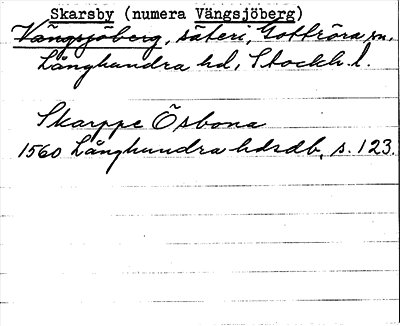 Skarsby (numera Vängsjöberg)
Vängsjöberg, säteri, Gottröra sn.
Långhundra hd, Stockh. l.
Skarppe Ösbona
1560 Långhundra hdsdb, s. 123.